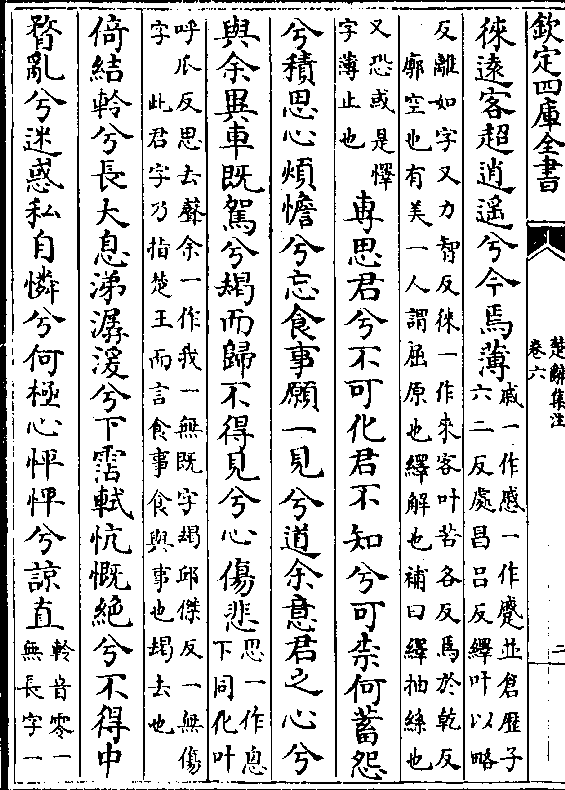 欽定四庫全書
楚辭集注
卷六
二
徠遠客超逍遥兮今焉薄
慼一作感一作蹙並倉歷子
六二反處昌吕反繹叶以略
反離如字又力智反徠一作來客叶苦各反焉於乾反
廓空也有美一人謂屈原也繹解也補曰繹抽絲也
又恐或是懌
字薄止也
專思君兮不可化君不知兮可柰何蓄怨
兮積思心煩憺兮忘食事願一見兮道余意君之心兮
與余異車既駕兮朅而歸不得見兮心傷悲
思一作息
下同化叶
呼瓜反思去聲余一作我一無既字朅邱傑反一無傷
字 此君字乃指楚王而言食事食與事也朅去也
倚結軨兮長大息涕潺湲兮下霑軾忼慨絶兮不得中
瞀亂兮迷惑私自憐兮何極心怦怦兮諒直
軨音零一
無長字一